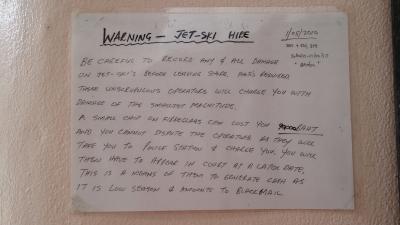 WARNING - JET-SKI HIRE
1/05/2010
BE CAREFUL TO RECORD ANY & ALL DAMAGE
ON JET-SKI'S BEFORE LEAVING SHORE.
THESE UNSCRUPULOUS OPERATORS WILL CHARGE YOU WITH
DAMAGE OF THE SMALLEST MAGNITUDE.
A SMALL CHIP ON FIBREGLASS CAN COST YOU BAHT
AND YOU CANNOT DISPUTE THE OPERATORS AS THEY WILL
TAKE YOU TO POLICE STATION & CHARGE YOU. YOU WILL
THEN HAVE TO APPEAR IN COURT AT A LATER DATE.
THIS IS A MEANS OF THEM TO GENERATE CASH AS
IT IS LOW SEASON & AMOUNTS TO BLACKMAIL